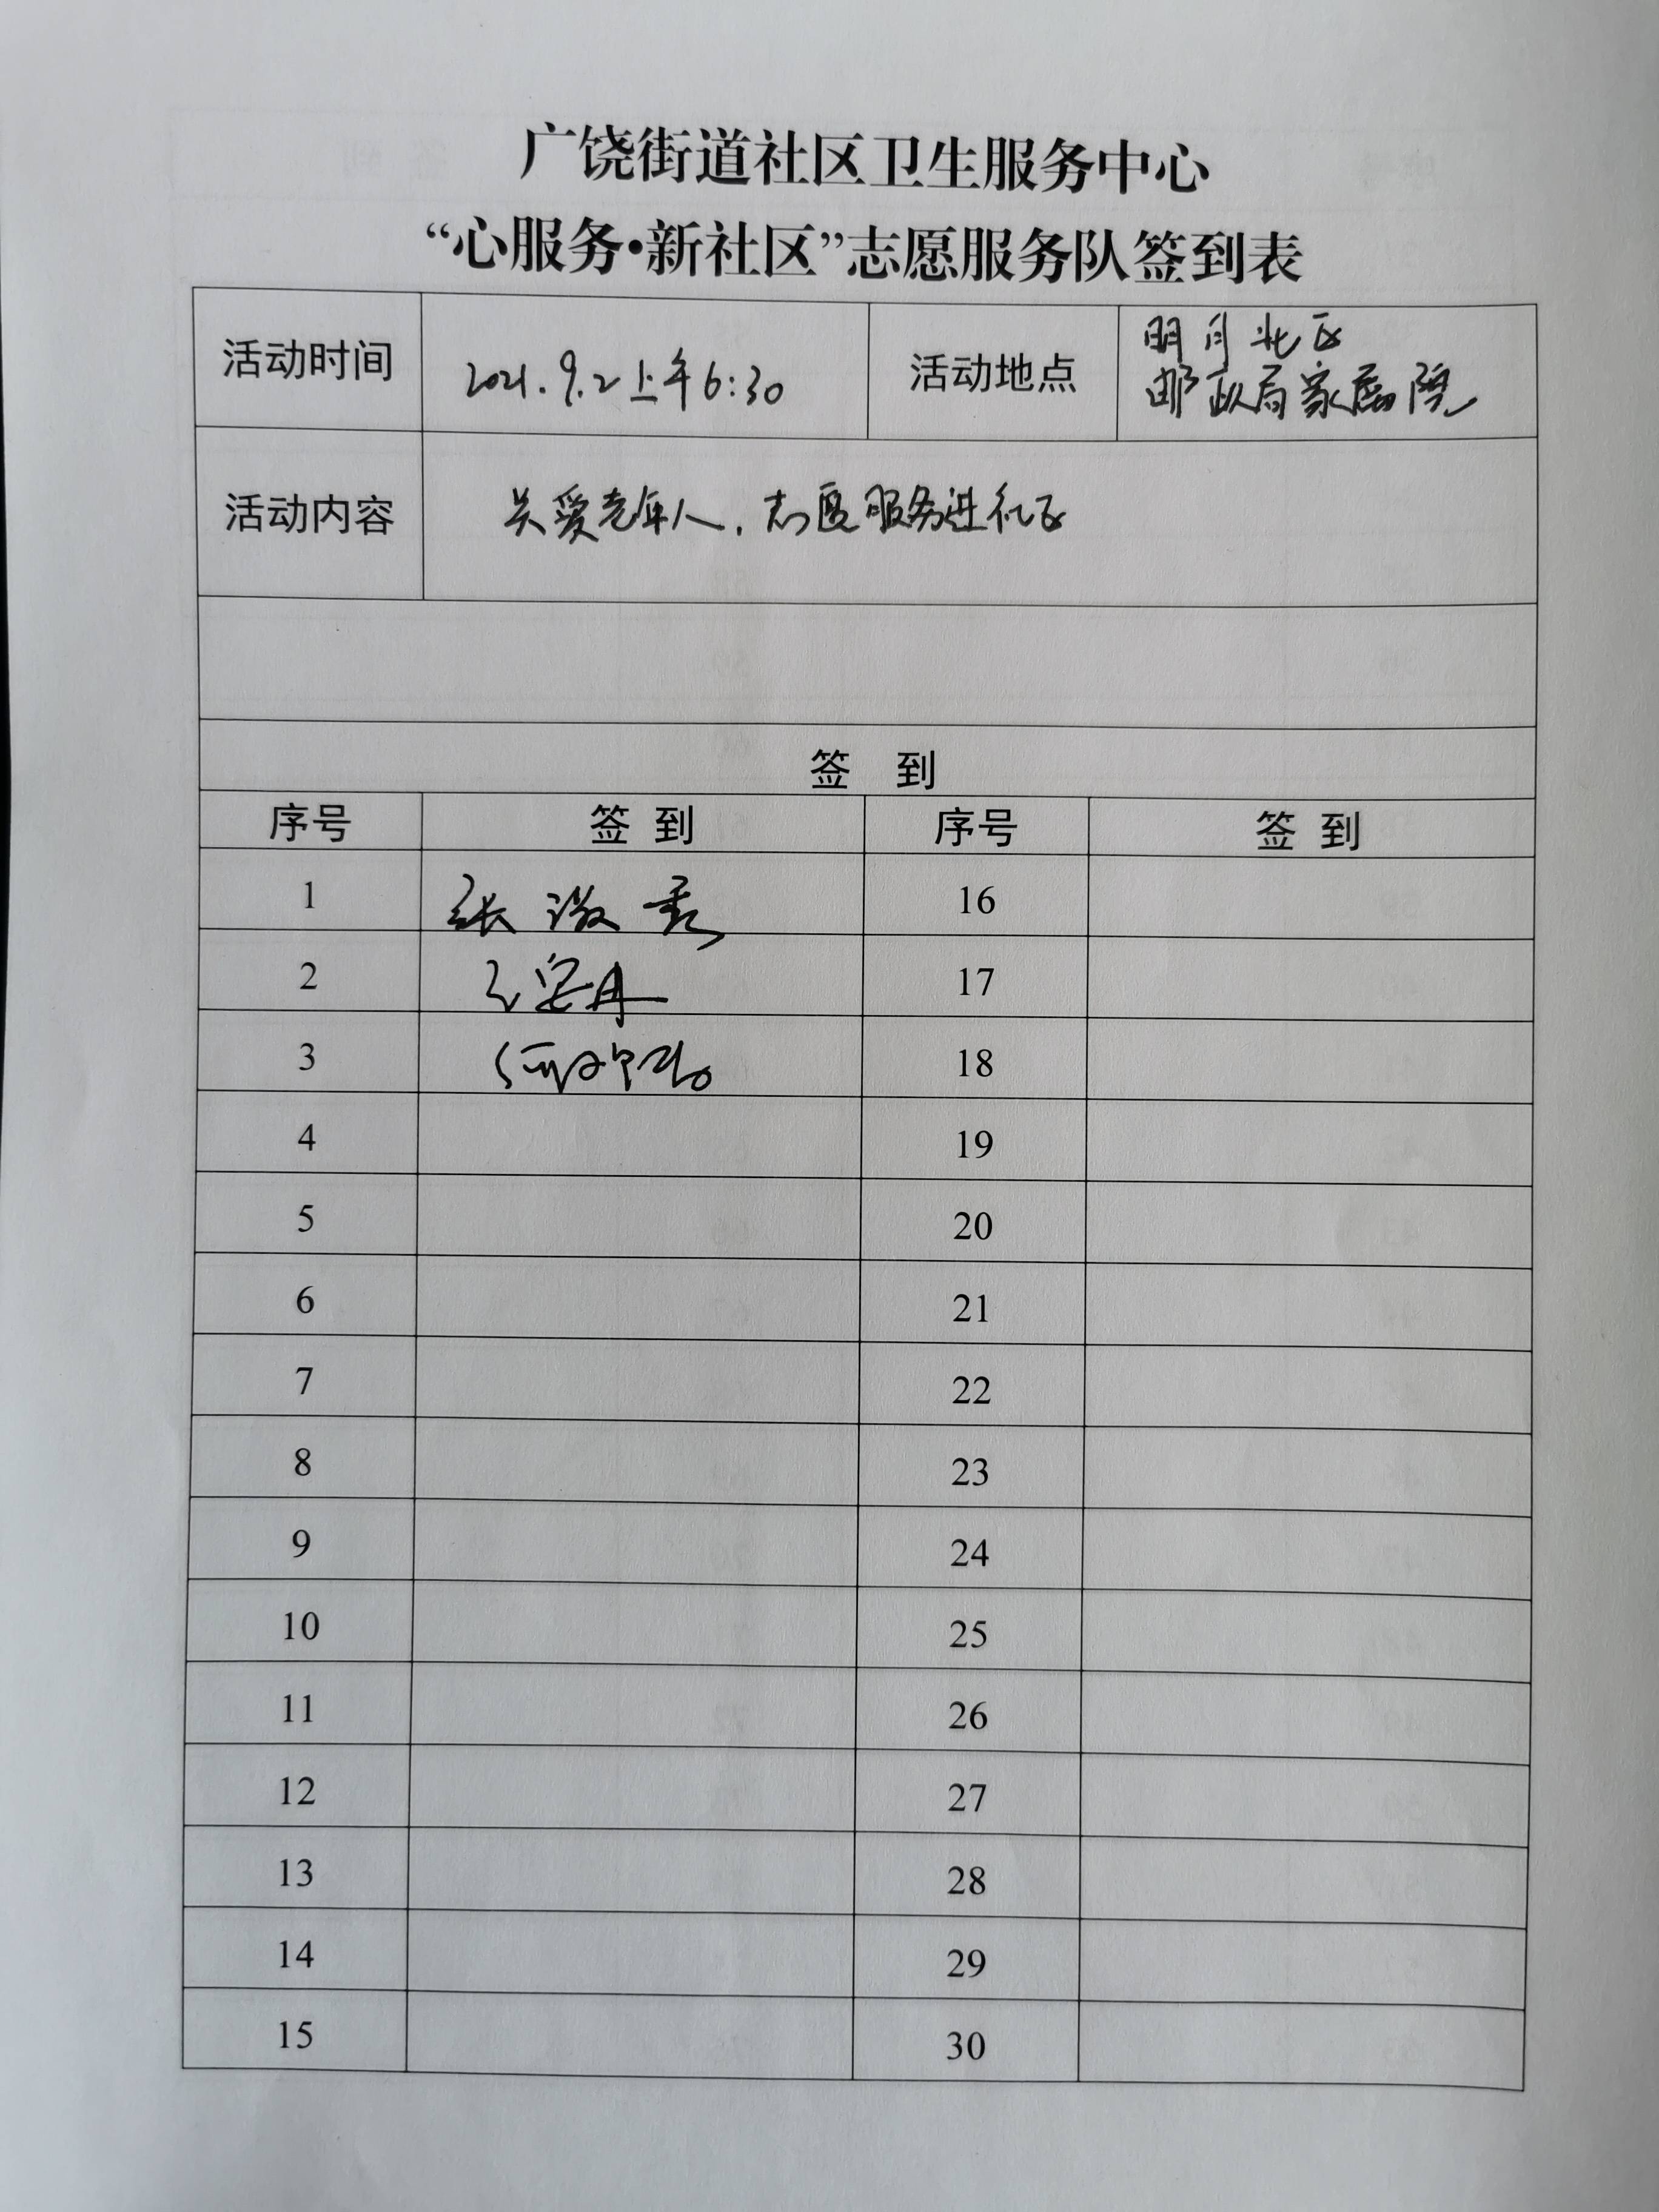 广饶街道社区卫生服务中心
“心服务•新社区”志愿服务队签到表
活动时间 2021.9.2上午6:30 活动地点 明月北区
邮政局家属院
活动内容 关爱老年人,志愿服务进社区
签 到
序号 签 到 序号 签 到
1 张 16
2 17
3 18
4 19
5 20
6 21
7 22
8 23
9 24
10 25
11 26
12 27
13 28
14 29
15 30